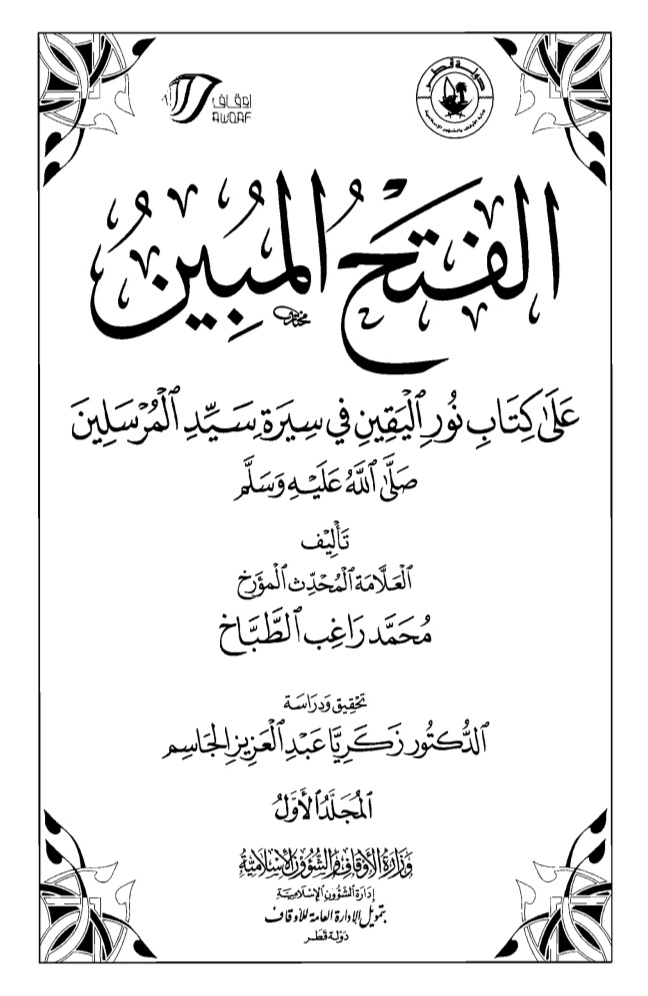 أوقاف
AWQAF
دولة قطر
وزارة الأوقاف والشؤون الإسلامية
الفَتْحُ المُبِينُ
عَلَى كِتَابِ نُورِ الْيَقِينِ فِي سِيرَةِ سَيِّدِ الْمُرْسَلِينَ
صَلَّى اللَّهُ عَلَيْهِ وَسَلَّم
تَأْلِيْف
الْعَلَّامَة الْمُحَدِّث الْمُؤَرِخ
مُحَمَّد رَاغِب الطَّبَّاخ
تحقِيق وَدرَاسَة
الدُّكتُور زَكَرِيَّا عَبْدِ الْعَزِيز الجَاسِم
المُجَلَّدُ الأَوَّلُ
وَزَارَةُ الأَوقَافِ وَالشُّؤُونِ الإِسْلَامِيَّةِ
إدَارَة الشُّؤُون الإسْلَاميَّة
بتمويل الإدارة العامة للأوقاف
دَولَة قَطَر